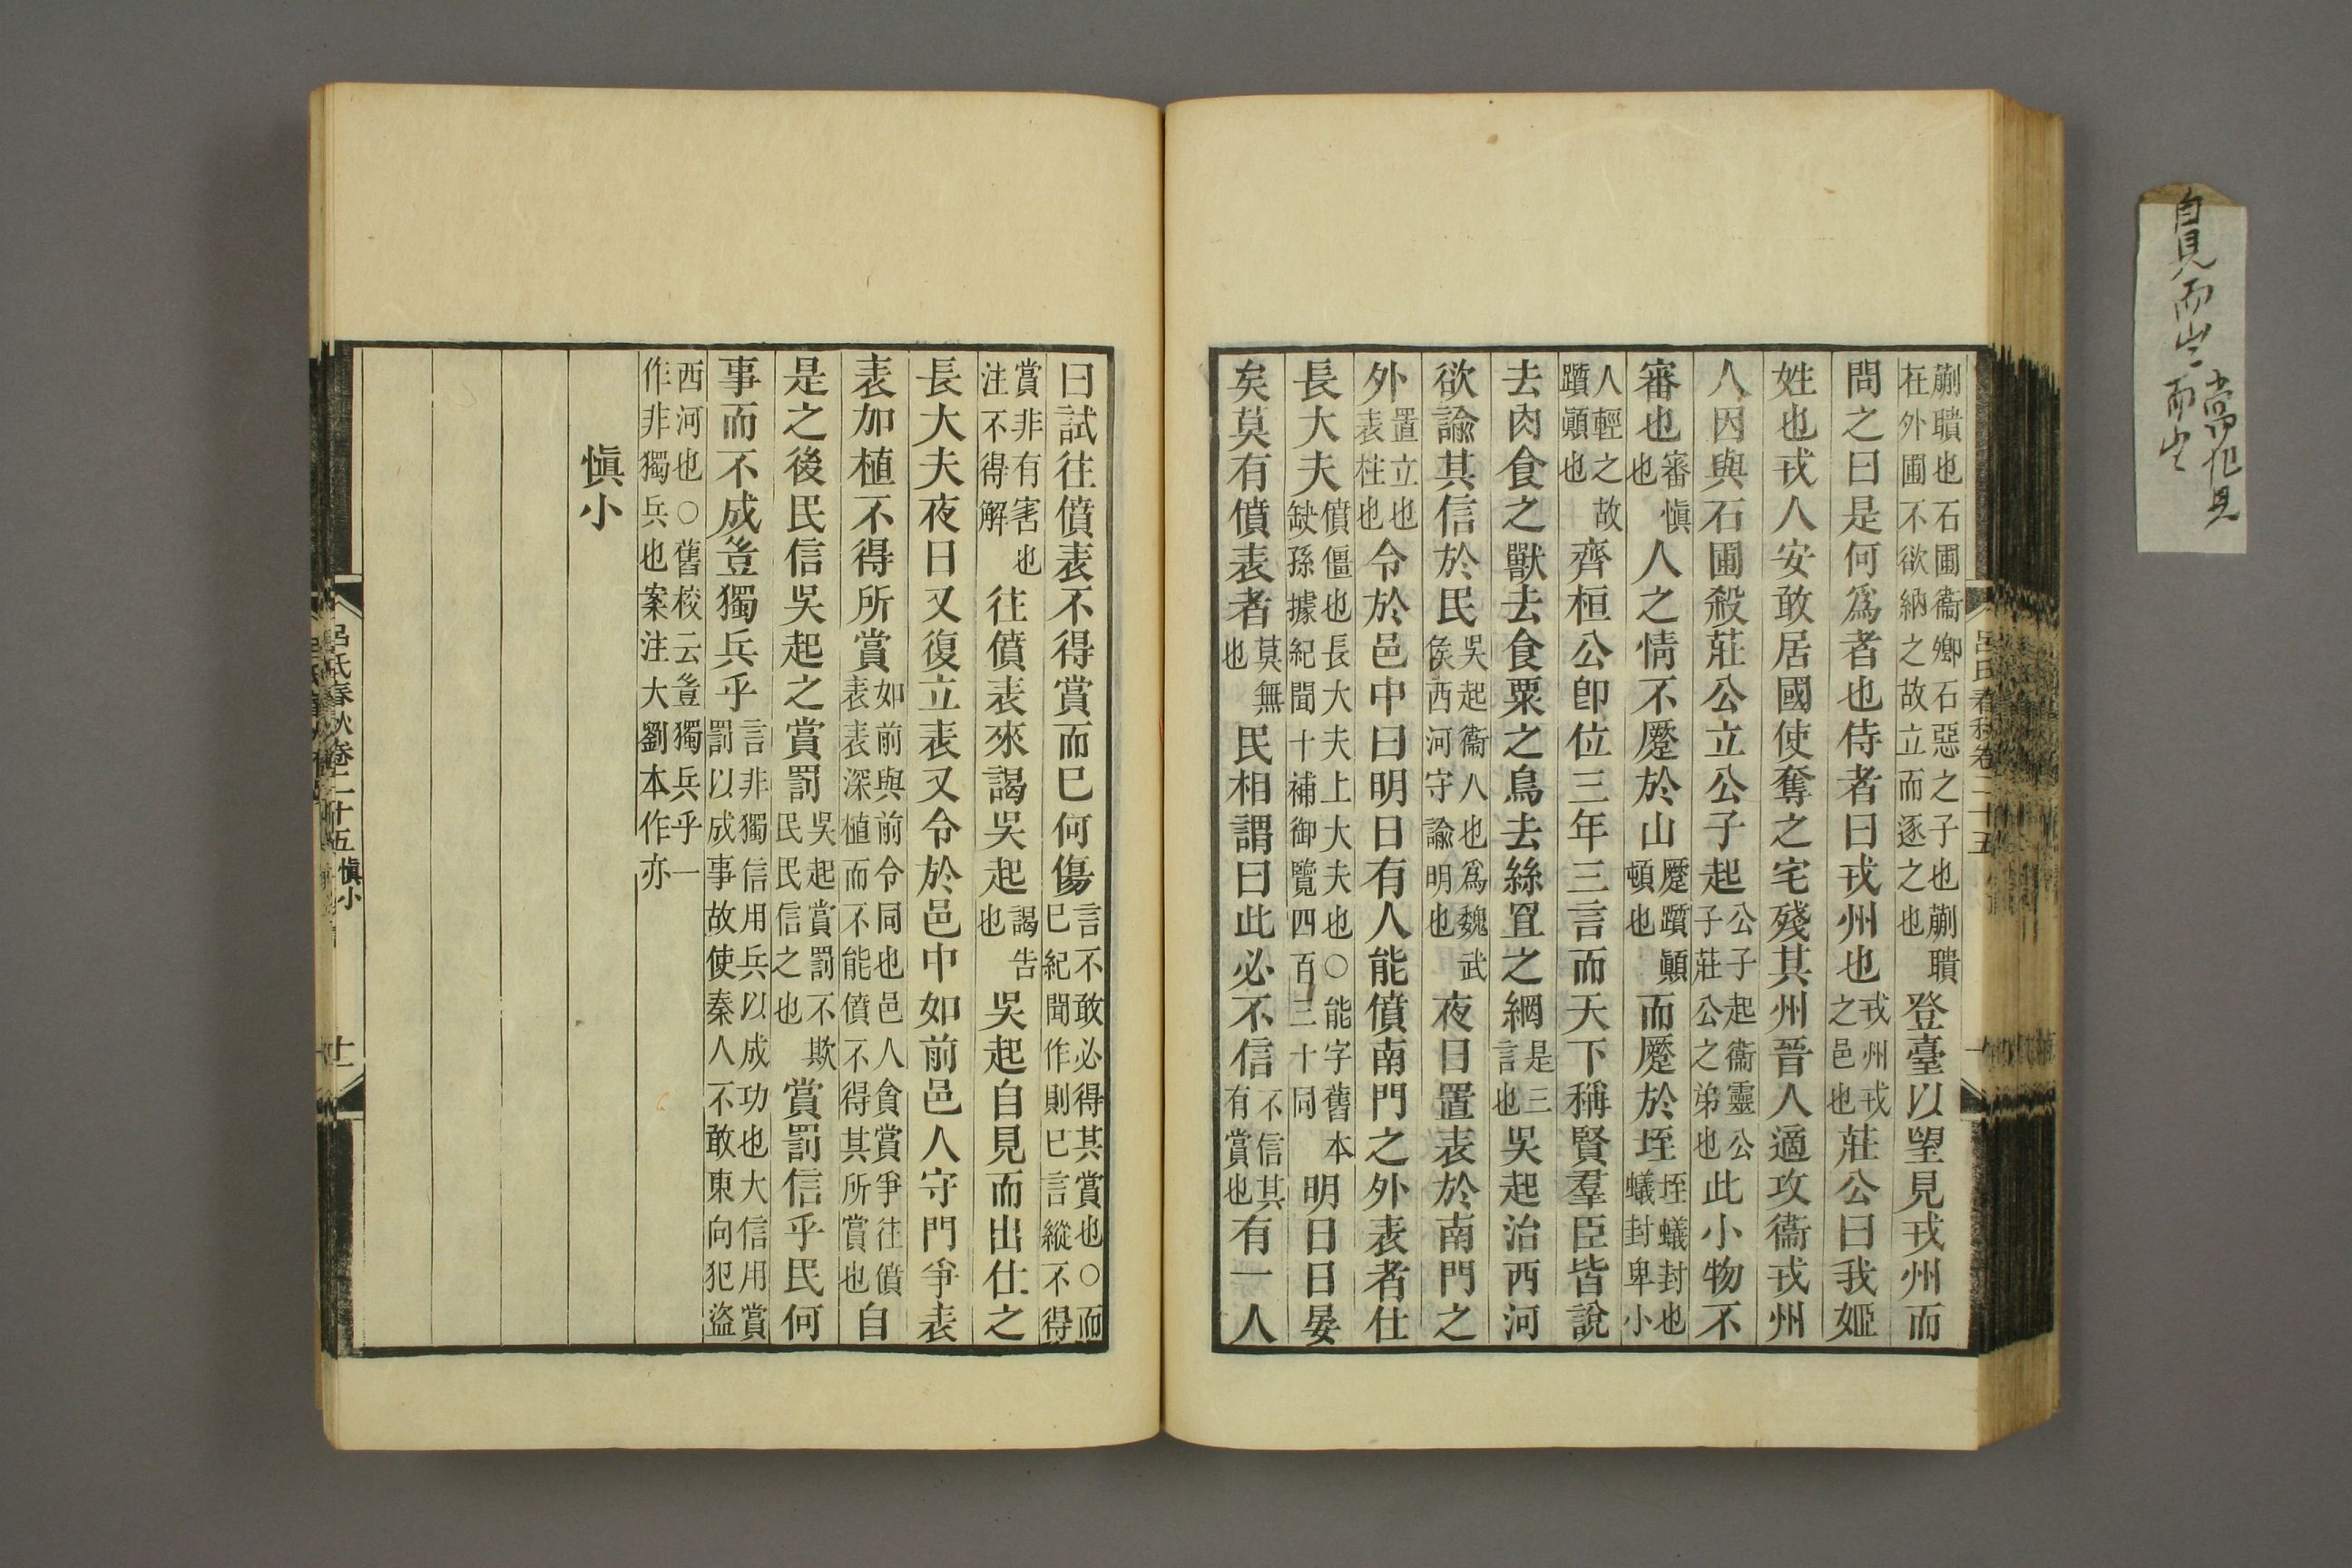 蒯聵也石圃衞卿石惡之子也蒯聵
在外圃不欲納之故立而逐之也
登臺以望見戎州而
問之曰是何爲者也侍者曰戎州也
戎州戎
之邑也
莊公曰我姬
姓也戎人安敢居國使奪之宅殘其州晉人適攻衞戎州
人因與石圃殺莊公立公子起
公子起衞靈公
子莊公之弟也
此小物不
審也
審愼
也
人之情不蹷於山
蹷躓顚
頓也
而蹷於垤
垤蟻封也
蟻封卑小
人輕之故
躓顚也
齊桓公卽位三年三言而天下稱賢羣臣皆說
去肉食之獸去食粟之鳥去絲罝之網
是三
言也
吳起治西河
欲諭其信於民
吳起衞人也爲魏武
侯西河守諭明也
夜日置表於南門之
外
置立也
表柱也
令於邑中曰明日有人能僨南門之外表者仕
長大夫
僨僵也長大夫上大夫也○能字舊本
缺孫據紀聞十補御覽四百三十同
明日日晏
矣莫有僨表者
莫無
也
民相謂曰此必不信
不信其
有賞也
有一人
呂氏春秋卷二十五
曰試往僨表不得賞而已何傷
言不敢必得其賞也○而
已紀聞作則已言縱不得
賞非有害也
注不得解
往僨表來謁吳起
謁告
也
吳起自見而出仕之
長大夫夜日又復立表又令於邑中如前邑人守門爭表
表加植不得所賞
如前與前令同也邑人貪賞爭往僨
表表深植而不能僨不得其所賞也
自
是之後民信吳起之賞罰
吳起賞罰不欺
民民信之也
賞罰信乎民何
事而不成豈獨兵乎
言非獨信用兵以成功也大信用賞
罰以成事故使秦人不敢東向犯盜
西河也○舊校云豈獨兵乎一
作非獨兵也案注大劉本作亦
愼小
呂氏春秋卷二十五
愼小
十一
自見而出
當作見
而出